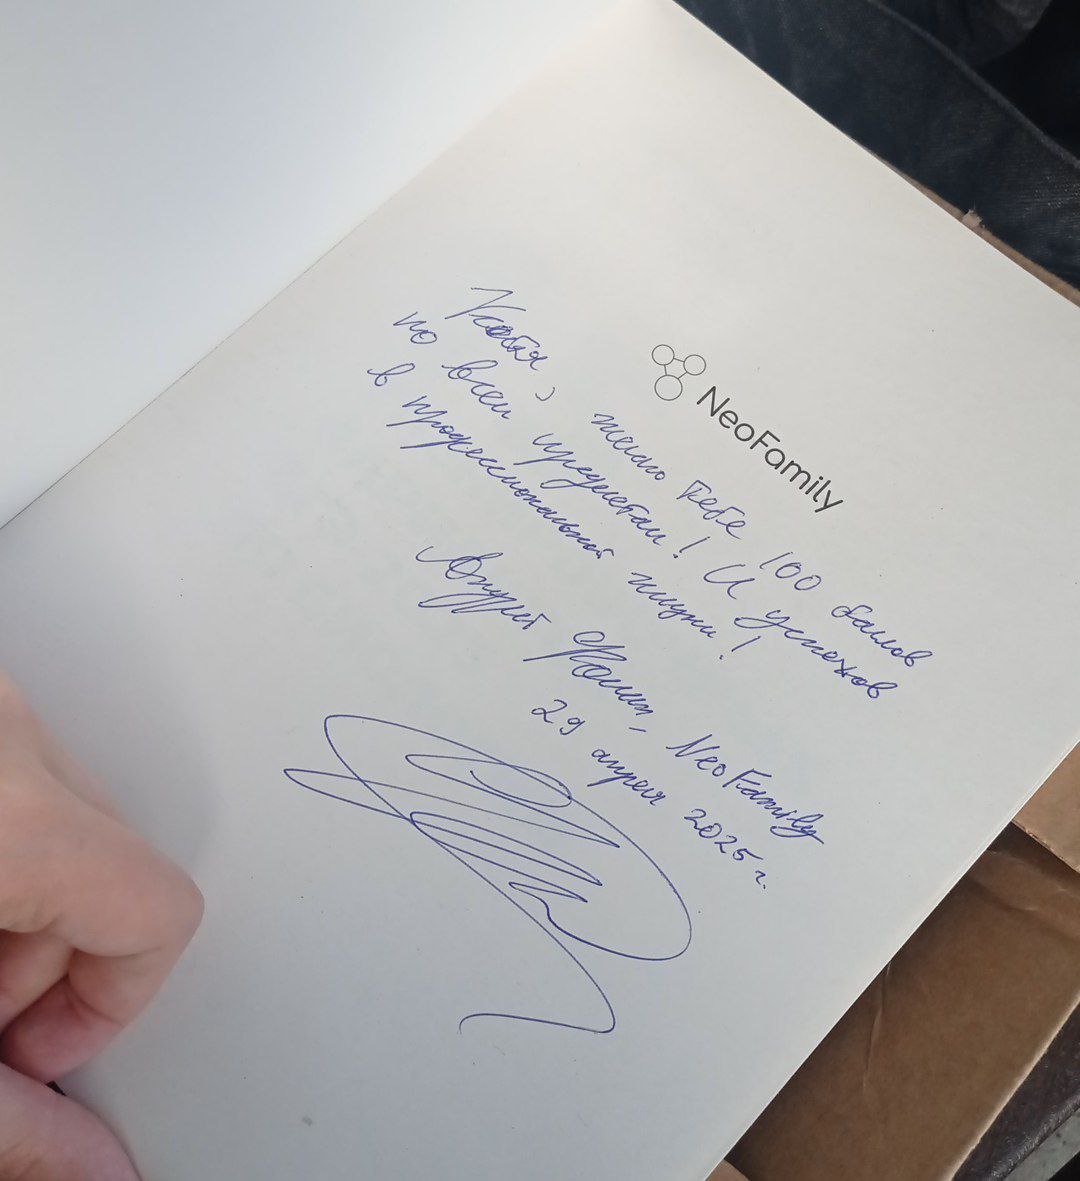 NeoFamily
Катя, желаю тебе 100 баллов
по всем предметам! И успехов
в профессиональной жизни!
Андрей Фомин, NeoFamily
29 апреля 2025 г.